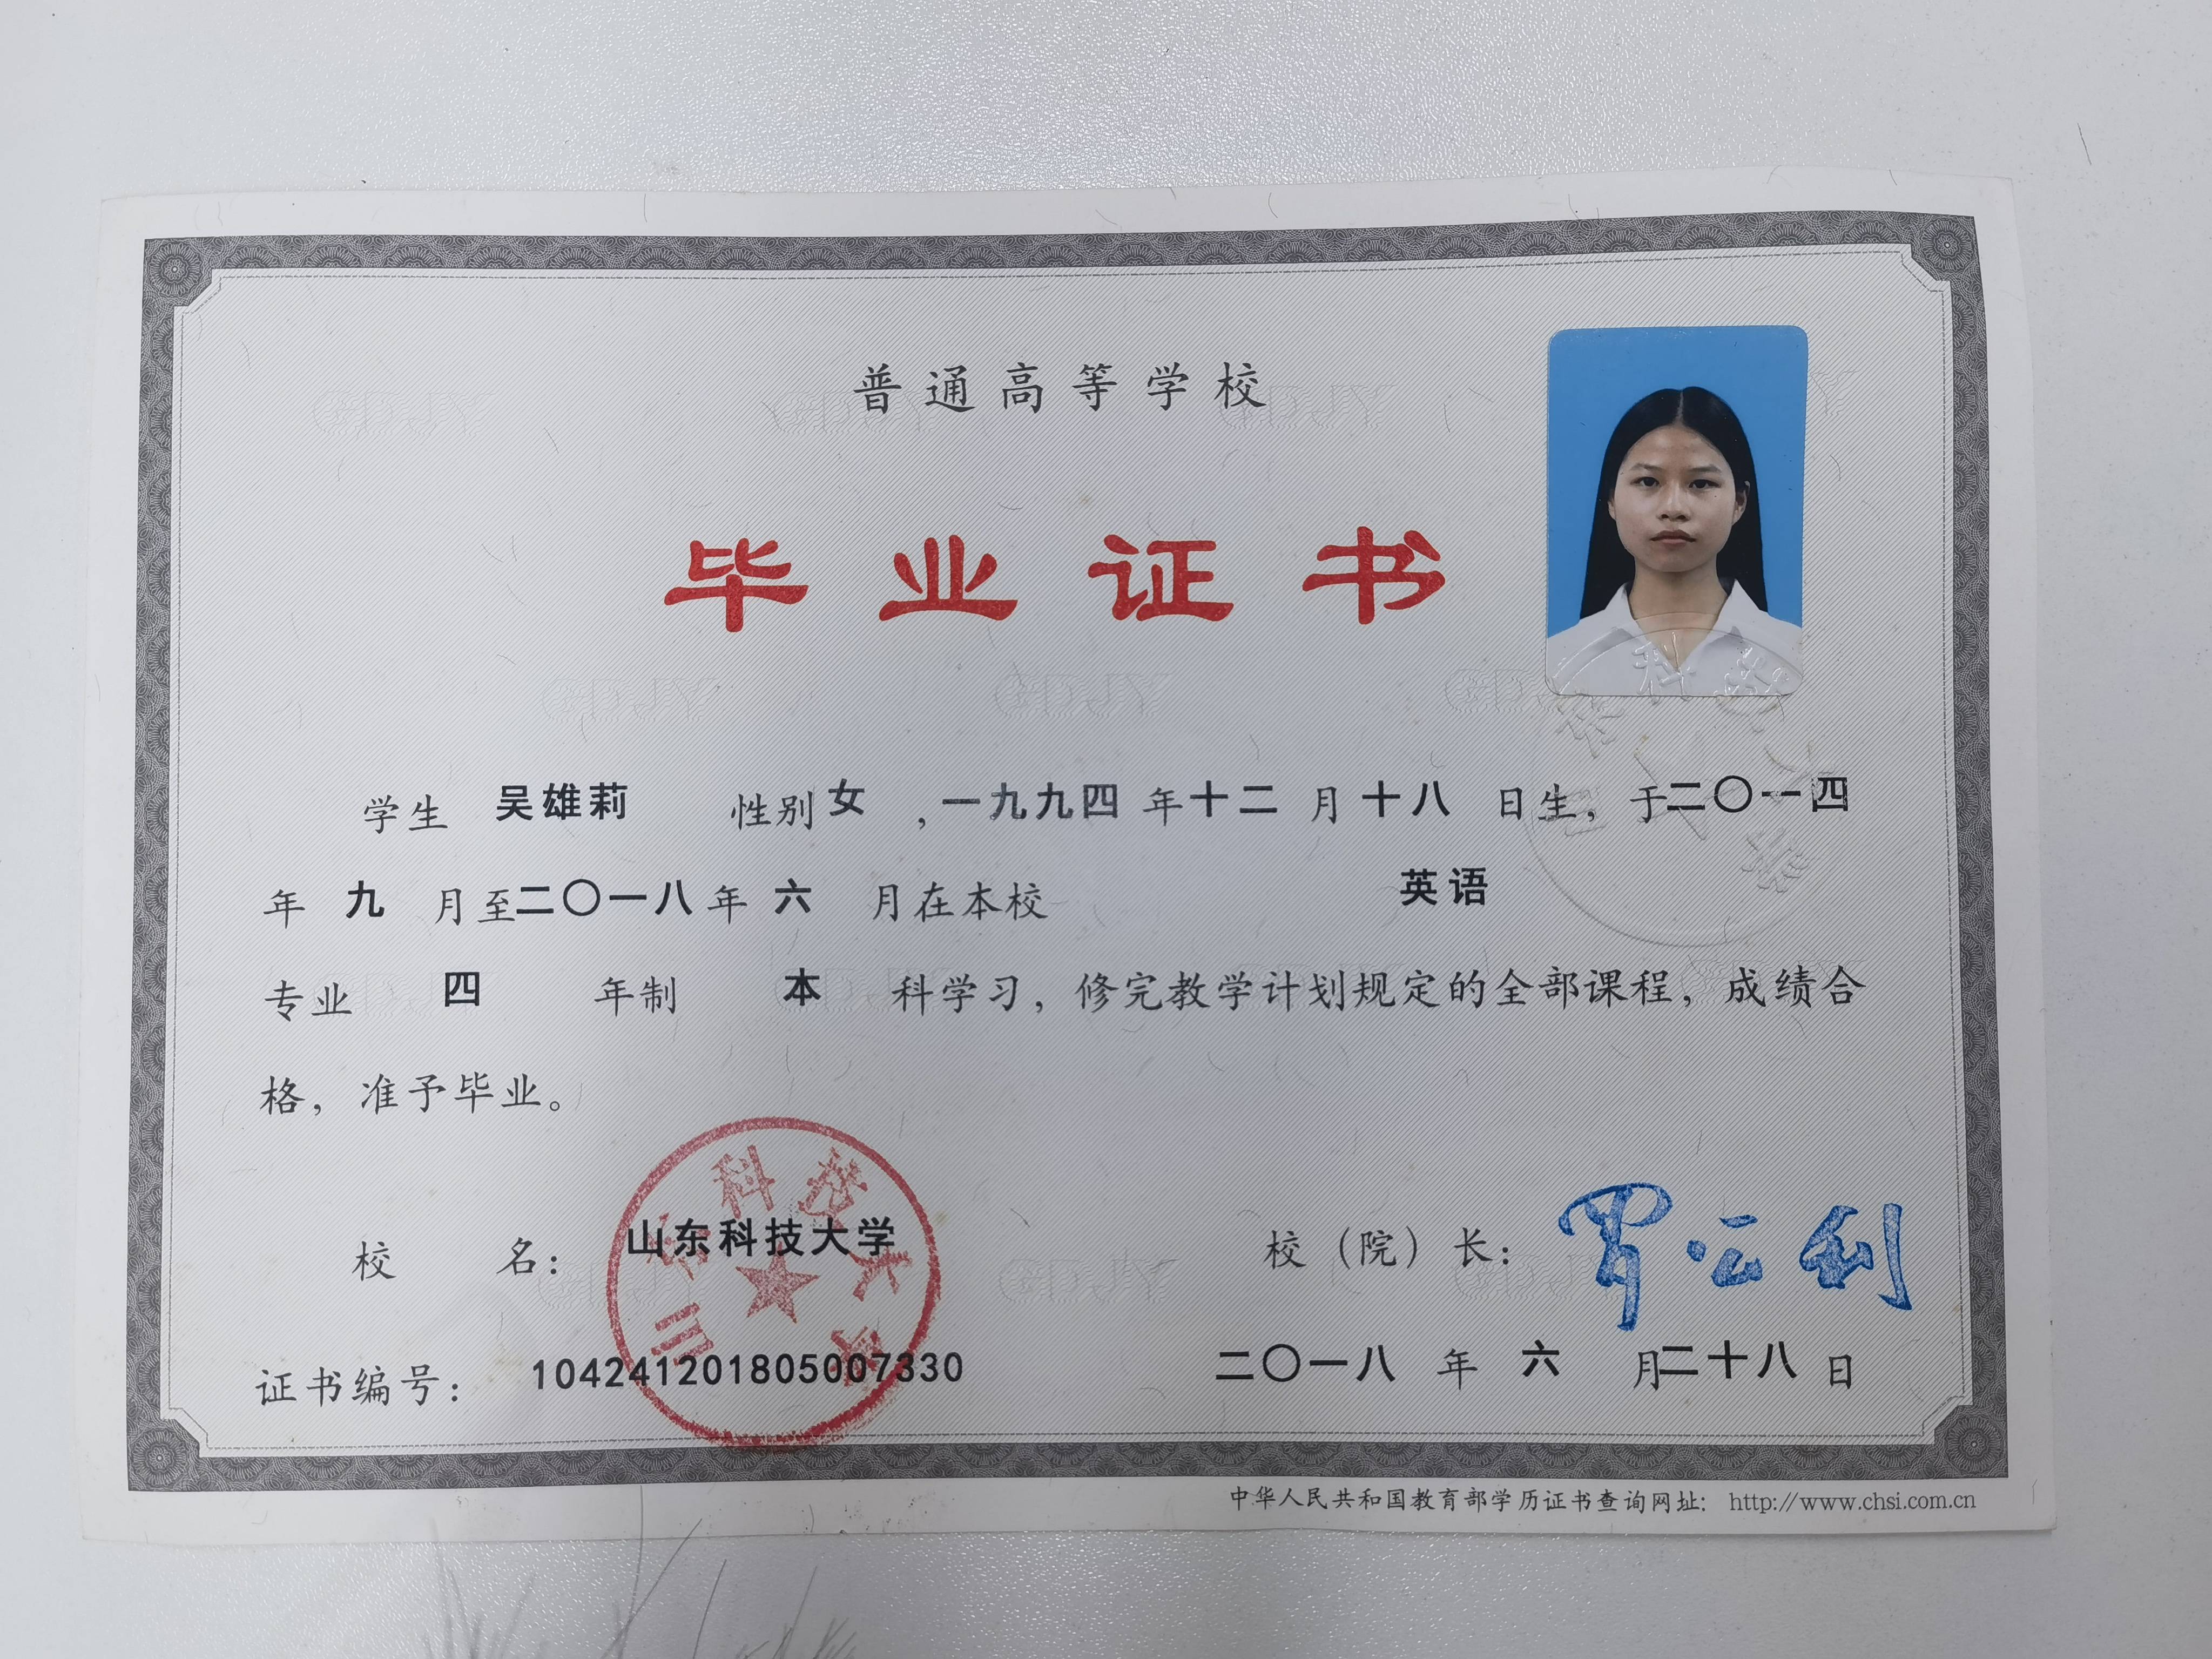 普通高等学校
毕业证书
学生 吴雄莉 性别 女 ，一九九四 年 十二 月 十八 日生，于二〇一四
年 九 月至二〇一八 年 六 月在本校 英语
专业 四 年制 本 科学习，修完教学计划规定的全部课程，成绩合
格，准予毕业。
校 名： 山东科技大学 校（院）长： 罗公利
山东科技大学
证书编号： 104241201805007330 二〇一八 年 六 月二十八 日
中华人民共和国教育部学历证书查询网址： http://www.chsi.com.cn